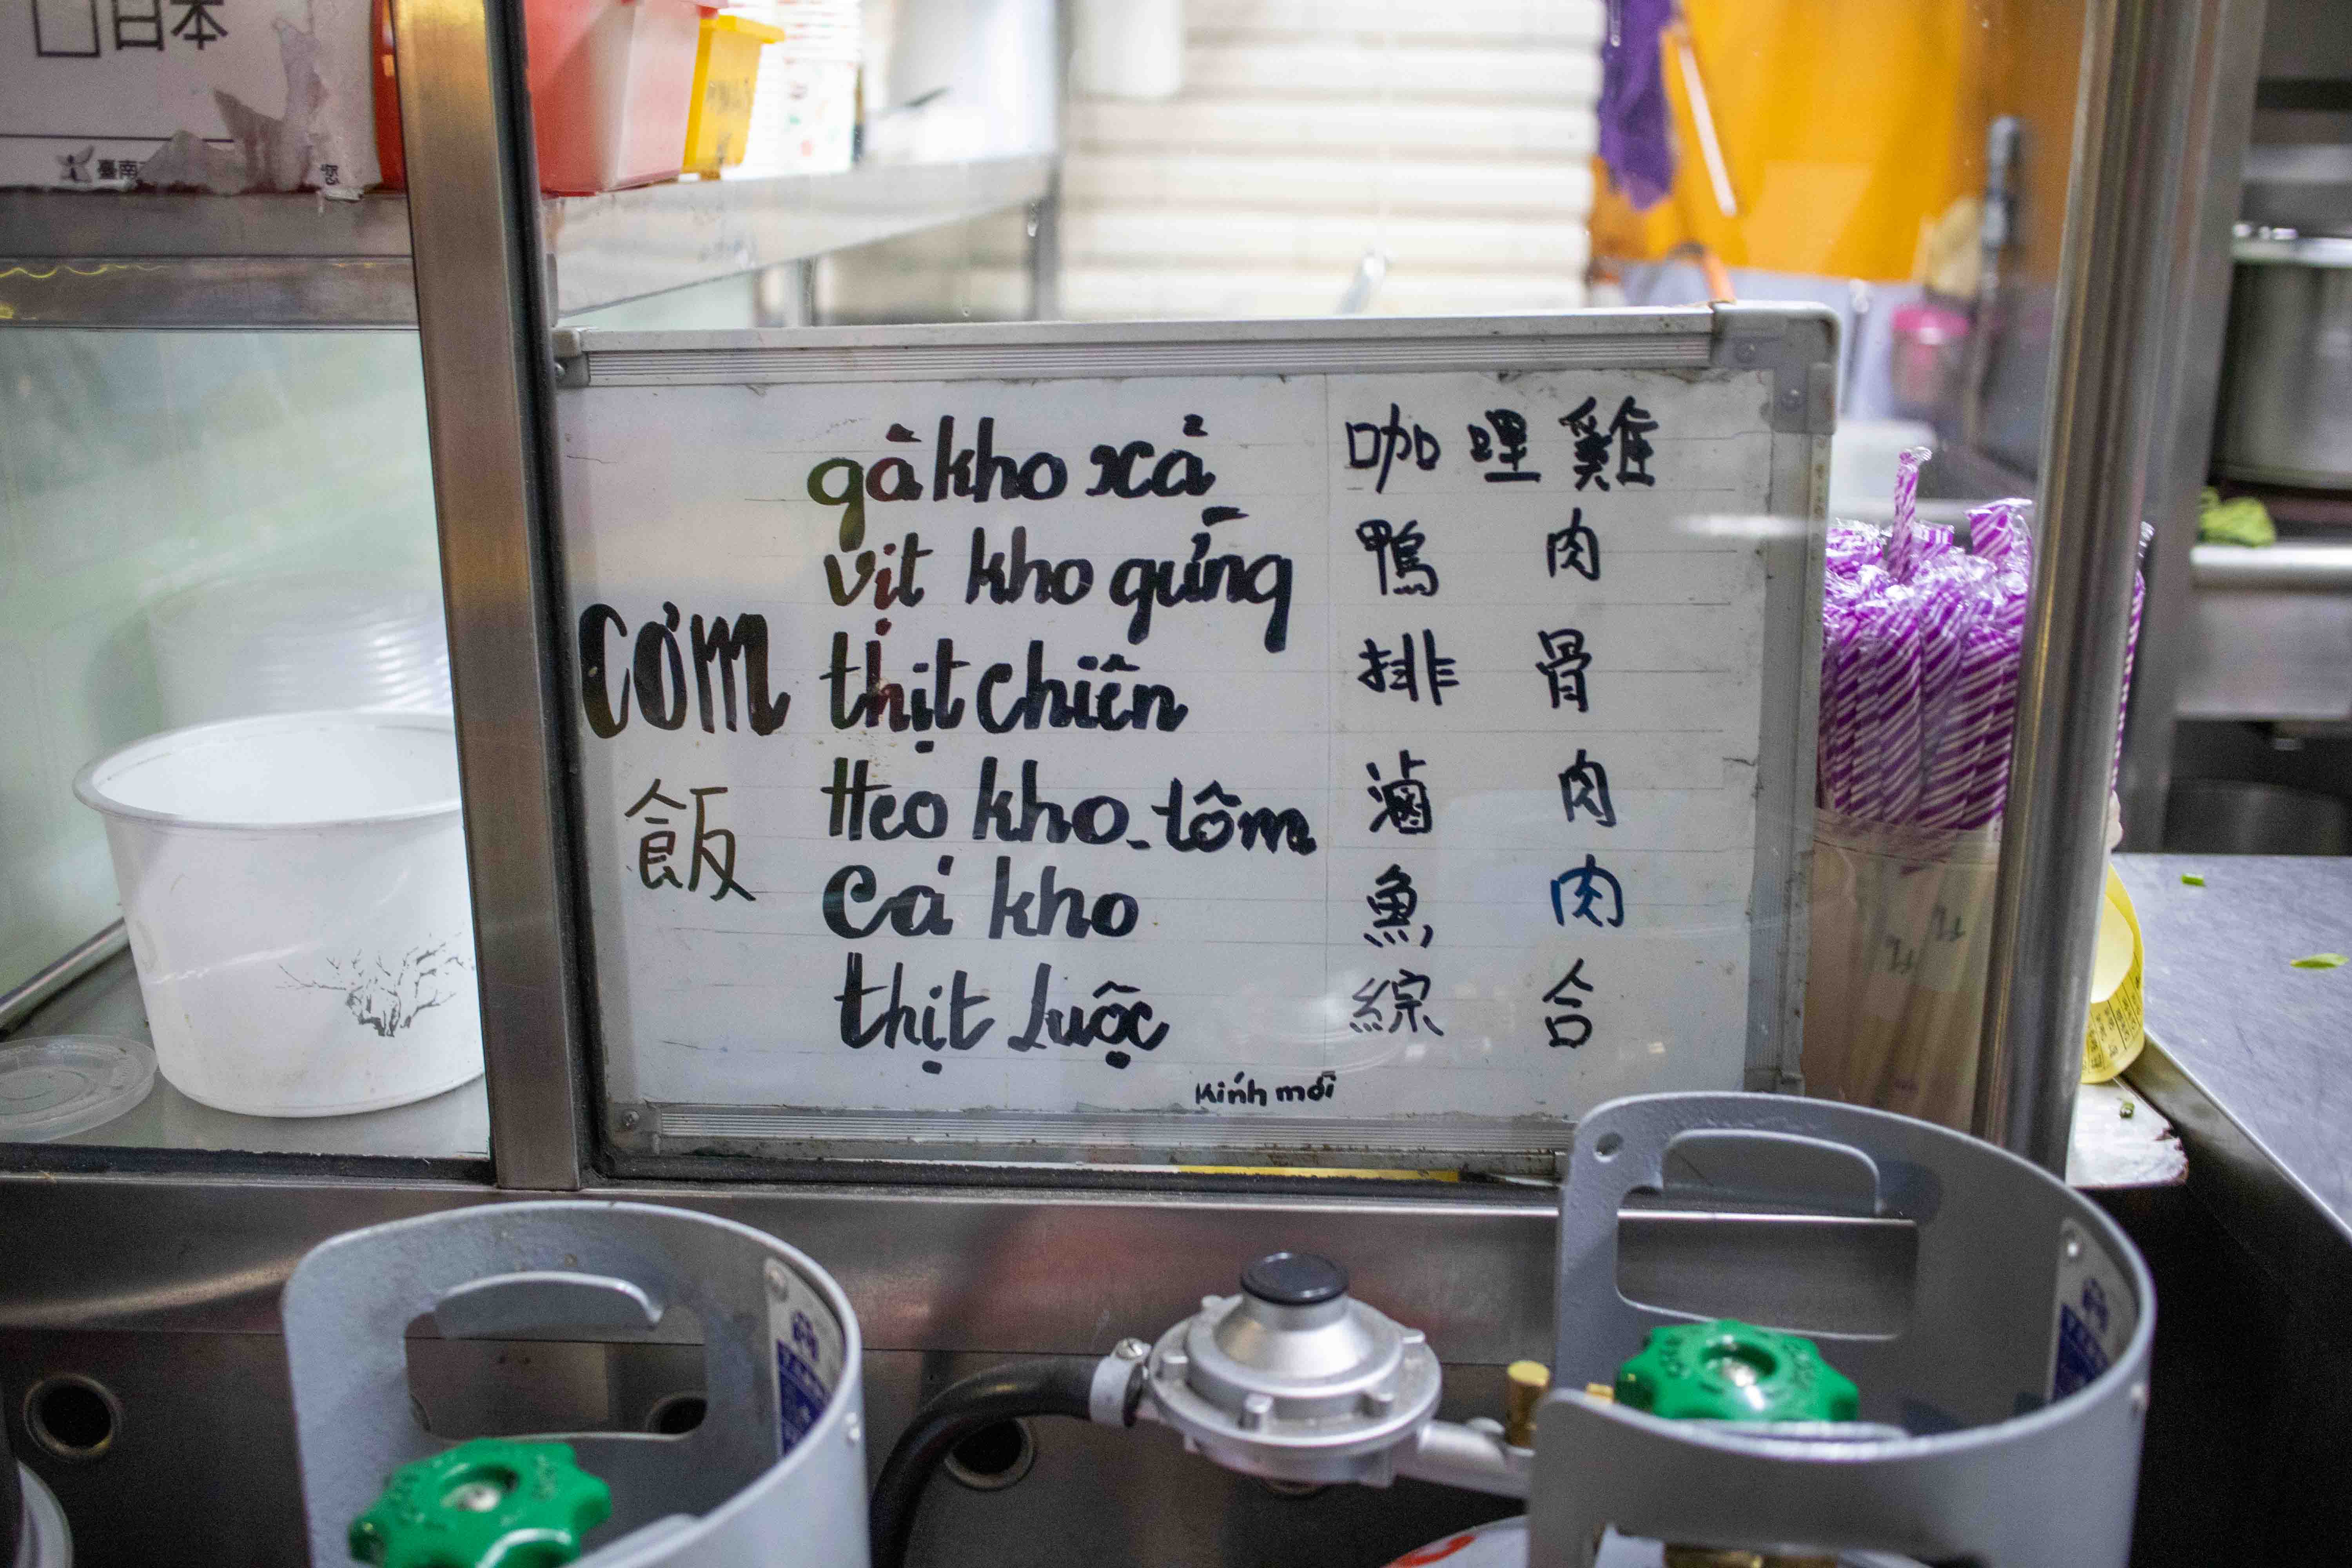 日本
臺南
您
gà kho xả 咖哩雞
vịt kho gừng 鴨肉
cơm thịt chiên 排骨
飯 Heo kho - tôm 滷肉
Cá kho 魚肉
thịt luộc 綜合
Kính mời